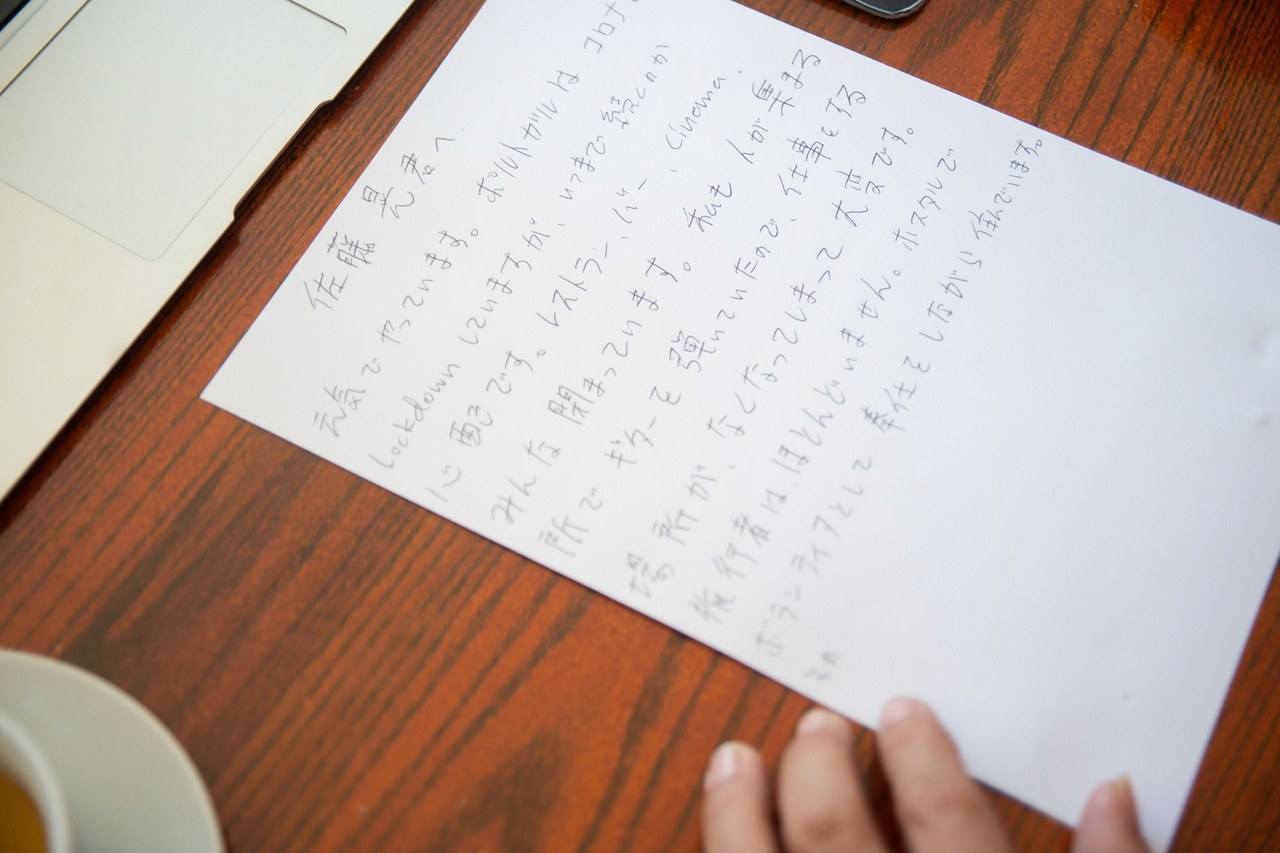 佐藤 晃 君へ
元気でやっています。ポルトガルは、コロナで
Lockdown していますが、いつまで続くのか
心配です。レストラン、バー、Cinema.
みんな閉まっています。私も人が集まる
所でギターを弾いていたので、仕事をする
場所が、なくなってしまって大変です。
旅行者は、ほとんどいません。ホステルで
ボランティアとして奉仕をしながら住んでいます。